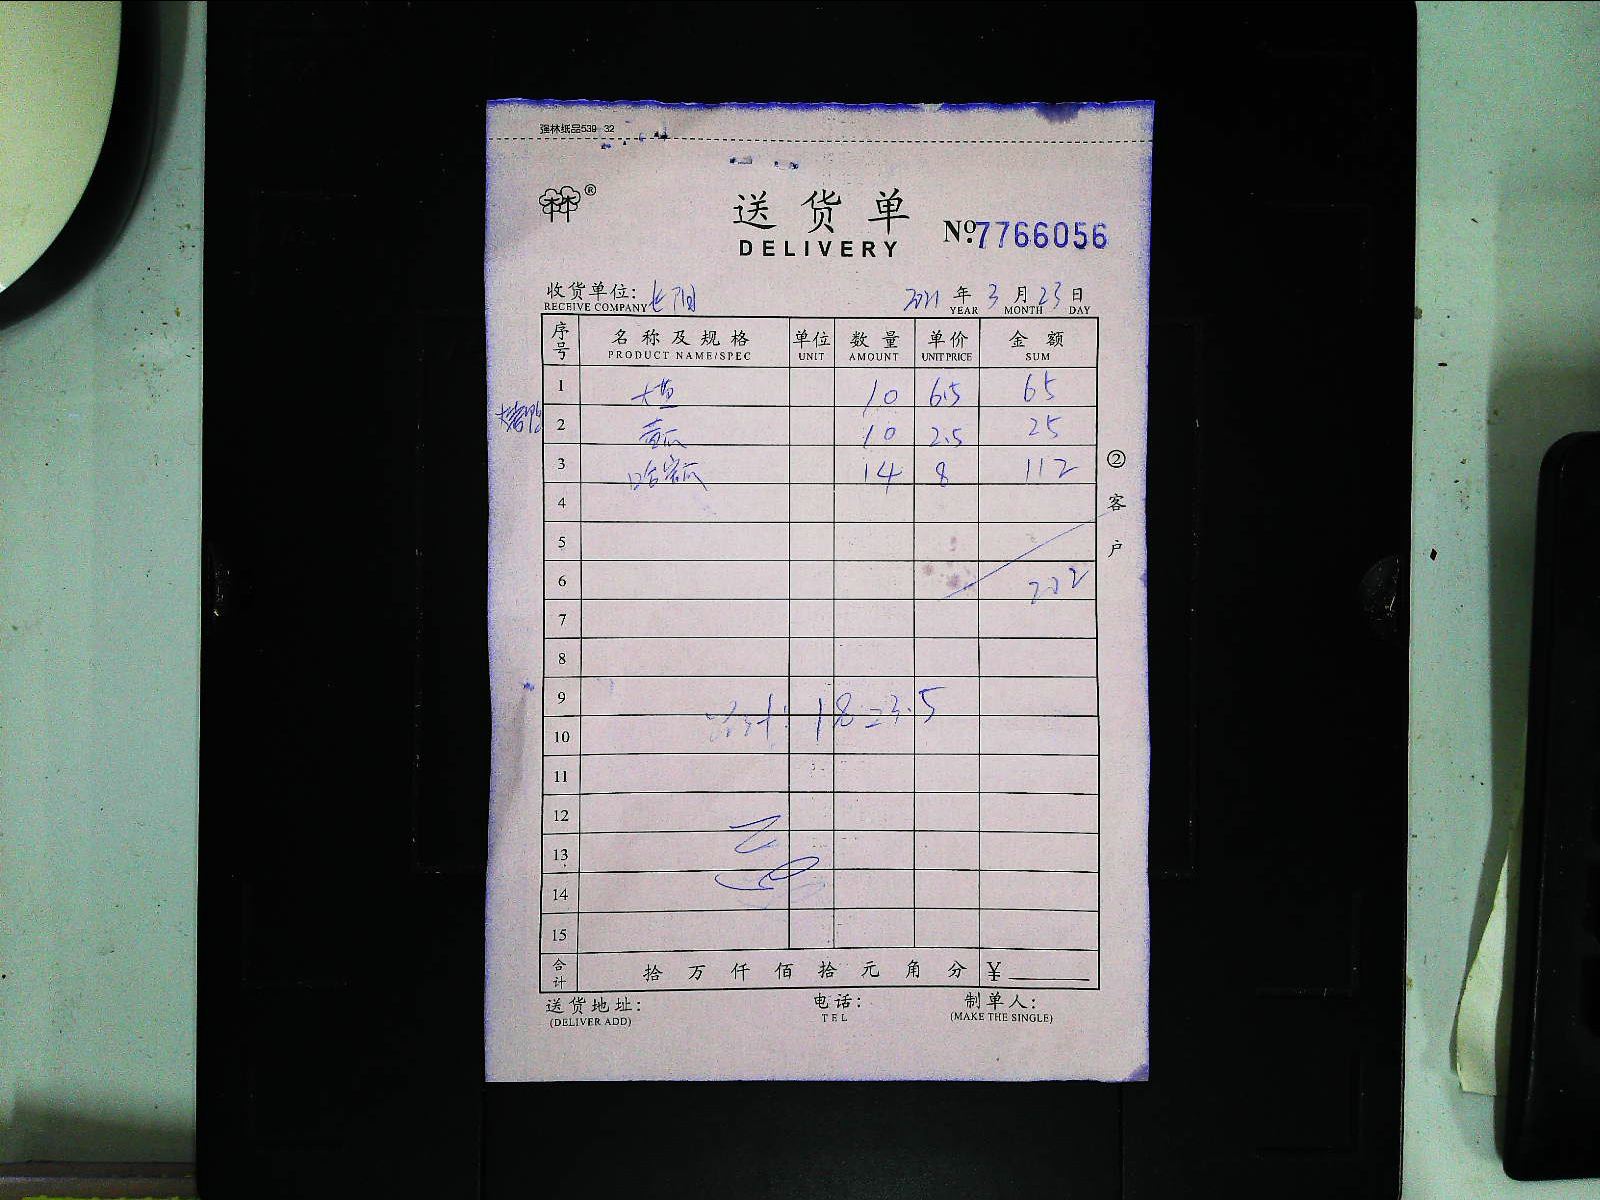 强林纸品539 32
® 送货单 No.7766056
DELIVERY
收货单位: 2021年3月23日
RECEIVE COMPANY YEAR MONTH DAY
序号 名称及规格 单位 数量 单价 金额
PRODUCT NAME/SPEC UNIT AMOUNT UNIT PRICE SUM
1 10 6.5 65
2 黄瓜 10 2.5 25
3 哈密瓜 14 8 112
4
5
6 202
7
8
9
10
总计: 1823.5
11
12
13
14
15
合计 拾 万 仟 佰 拾 元 角 分 ¥
②客户
送货地址: 电话: 制单人:
(DELIVER ADD) TEL (MAKE THE SINGLE)